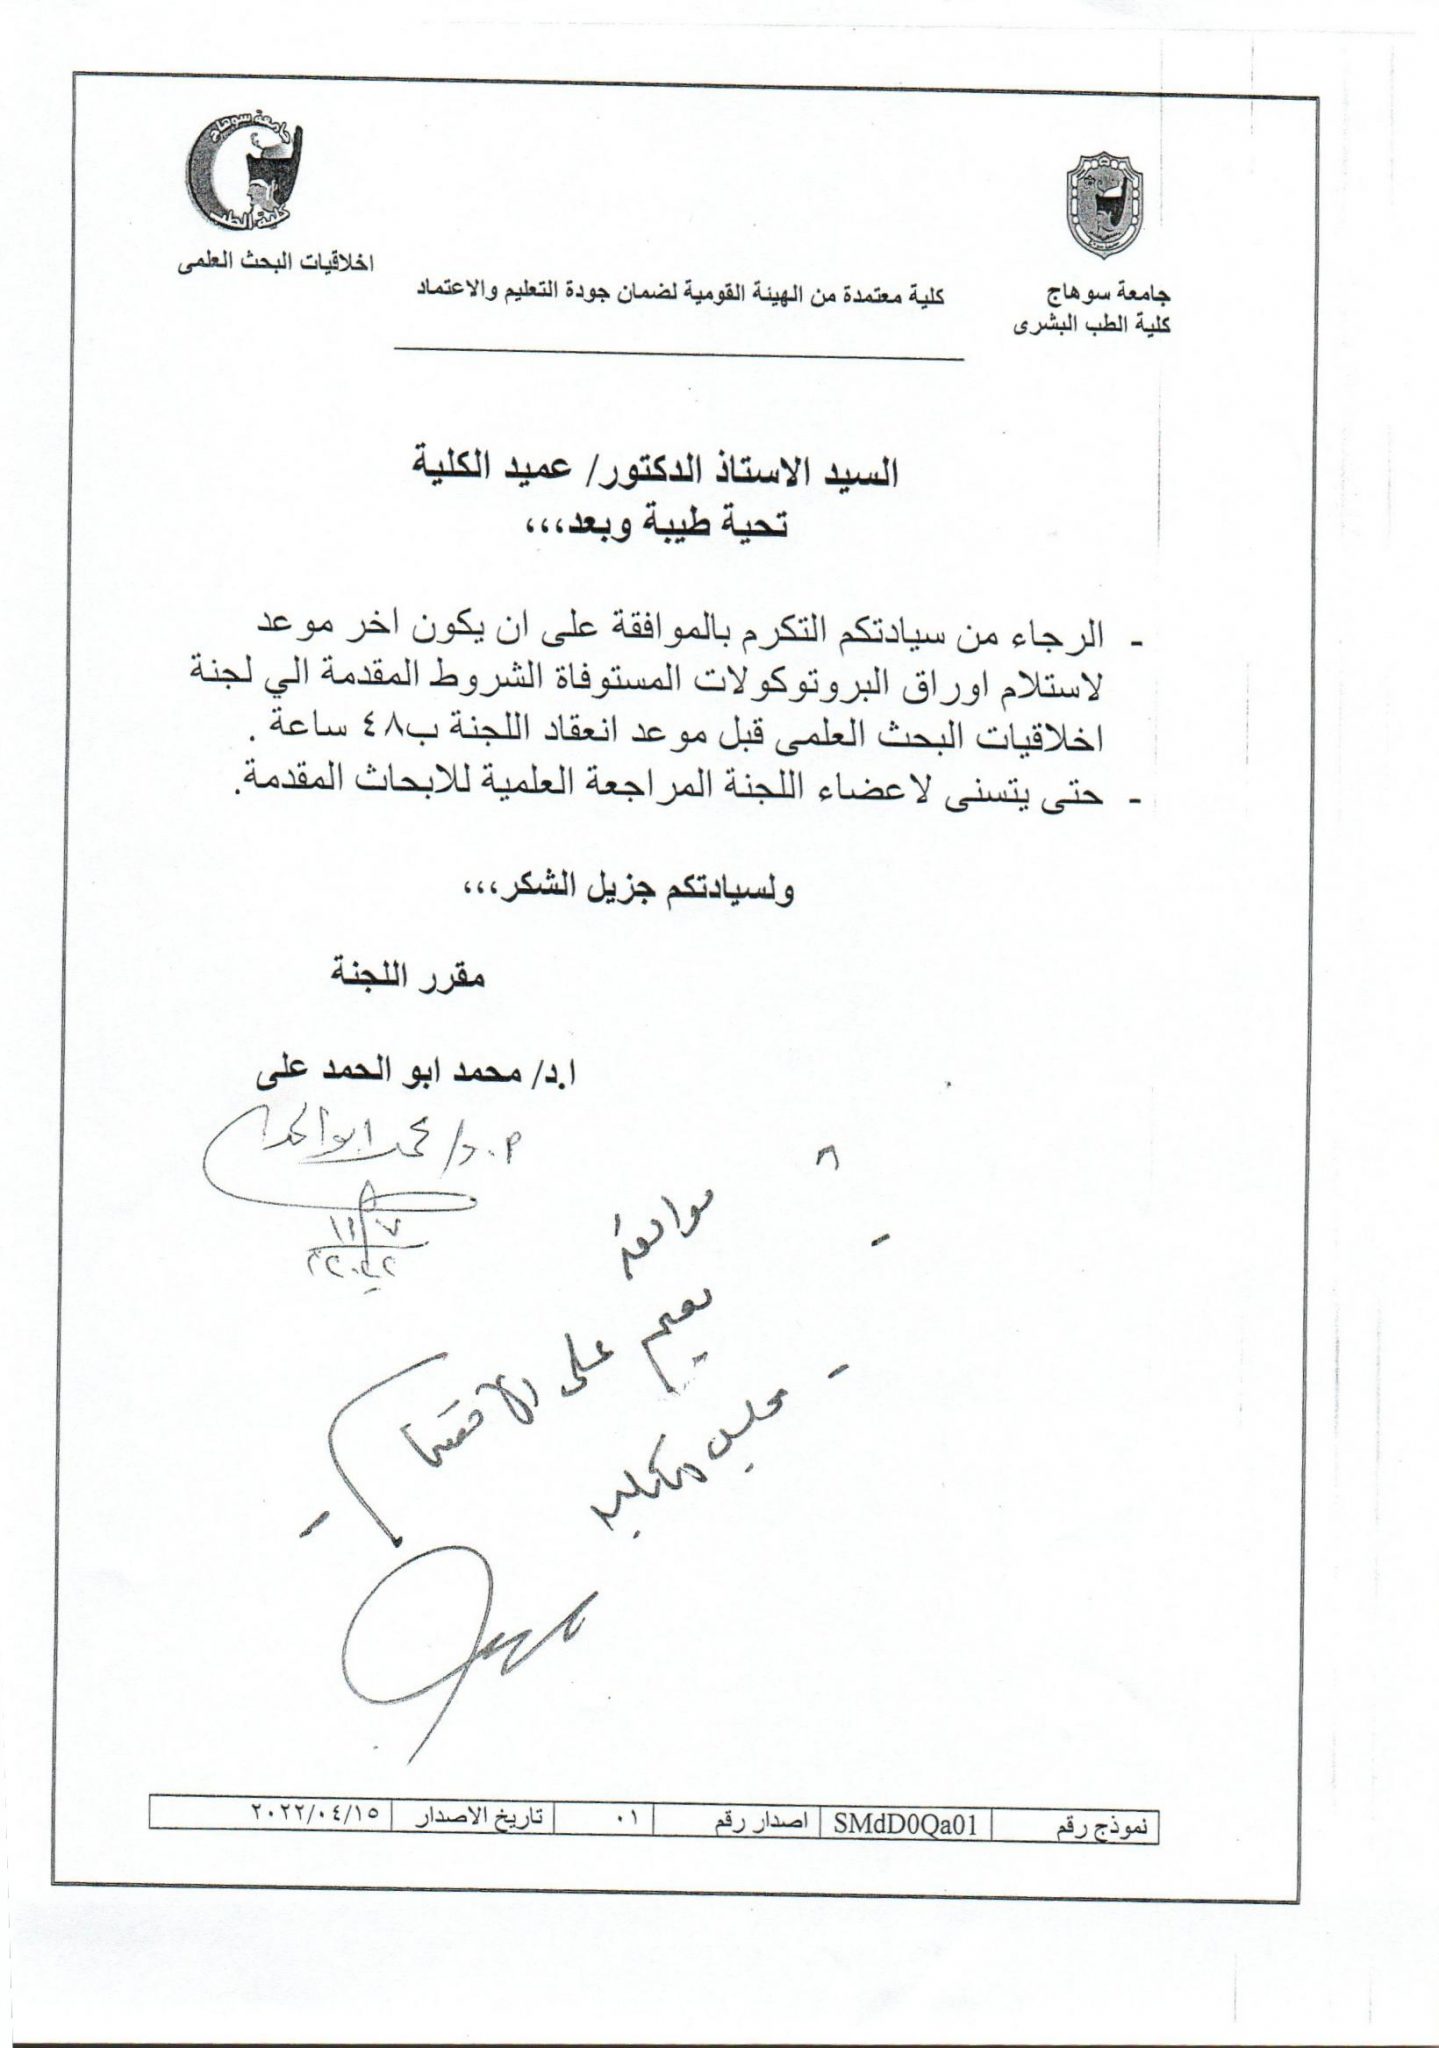 جامعة سوهاج
كلية الطب
اخلاقيات البحث العلمى
جامعة سوهاج
كلية الطب البشرى
كلية معتمدة من الهيئة القومية لضمان جودة التعليم والاعتماد
السيد الاستاذ الدكتور/ عميد الكلية
تحية طيبة وبعد،،،
- الرجاء من سيادتكم التكرم بالموافقة على ان يكون اخر موعد
لاستلام اوراق البروتوكولات المستوفاة الشروط المقدمة الي لجنة
اخلاقيات البحث العلمى قبل موعد انعقاد اللجنة ب٤٨ ساعة .
- حتى يتسنى لاعضاء اللجنة المراجعة العلمية للابحاث المقدمة.
ولسيادتكم جزيل الشكر،،،
مقرر اللجنة
ا.د/ محمد ابو الحمد على
أ.د/ محمد ابو الحمد
موافقة
يعمم على الاقسام
مجلس الكلية
نموذج رقم SMdD0Qa01 اصدار رقم ٠١ تاريخ الاصدار ٢٠٢٢/٠٤/١٥